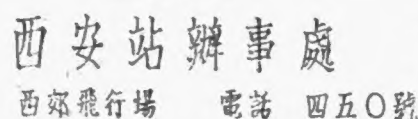 西安站辦事處
西郊飛行場　電話　四五〇號